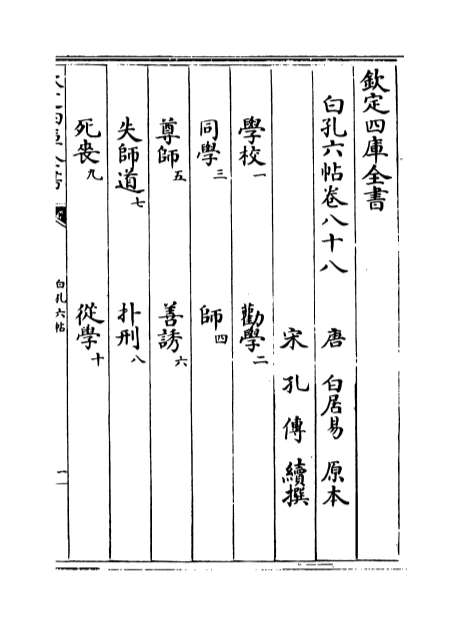 欽定四庫全書
白孔六帖卷八十八
唐 白居易 原本
宋 孔傳 續撰
學校一 勸學二
同學三 師四
尊師五 善誘六
失師道七 扑刑八
死喪九 從學十
白孔六帖